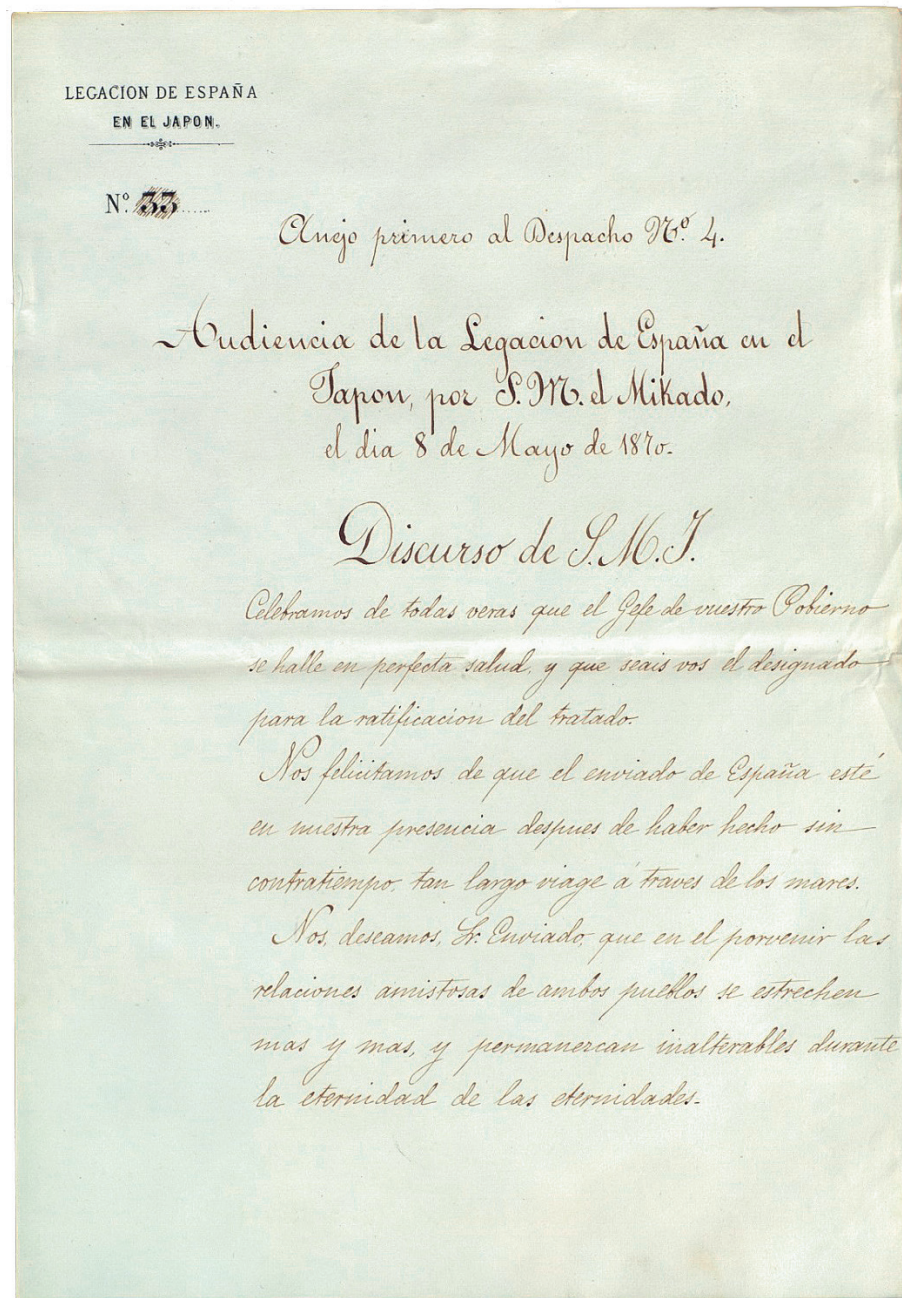 LEGACION DE ESPAÑA
EN EL JAPON.
Nº 33
Anejo primero al Despacho Nº 4.
Audiencia de la Legacion de España en el
Japon, por S. M. el Mikado,
el dia 8 de Mayo de 1870.
Discurso de S. M. I.
Celebramos de todas veras que el Gefe de vuestro Gobierno
se halle en perfecta salud, y que seais vos el designado
para la ratificacion del tratado.
Nos felicitamos de que el enviado de España esté
en nuestra presencia despues de haber hecho sin
contratiempo, tan largo viage á traves de los mares.
Nos, deseamos, Sr. Enviado, que en el porvenir las
relaciones amistosas de ambos pueblos se estrechen
mas y mas, y permanezcan inalterables durante
la eternidad de las eternidades.